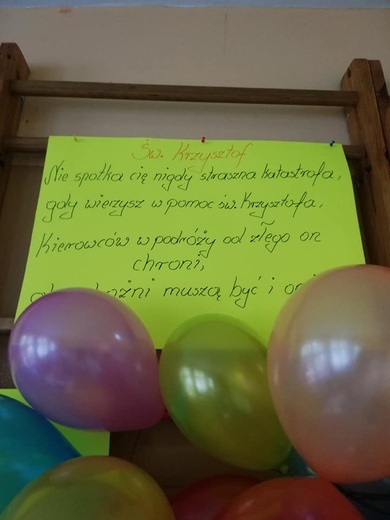 Św. Krzysztof
Nie spotka cię nigdy straszna katastrofa,
gdy wierzysz w pomoc św. Krzysztofa,
Kierowców w podróży od złego on
chroni,
muszą być i